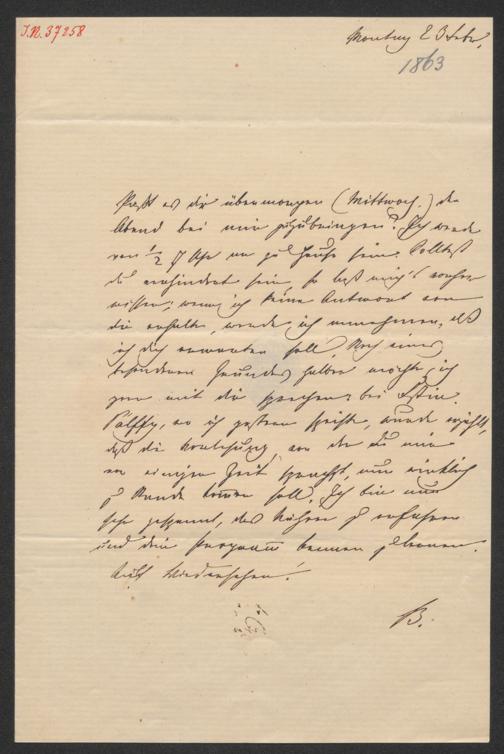 I.N. 37258
Montag 23 Febr.
1863
Paßt es dir übermorgen (Mittwoch) den
Abend bei mir zuzubringen? Ich werde
von ½ 7 Uhr an zu Hause sein. Solltest
du verhindert sein, so laß mich's vorher
wissen; wenn ich keine Antwort von
dir erhalte, werde ich annehmen, daß
ich dich erwarten soll. Noch eines
besonderen Grundes halber möchte ich
gern mit dir sprechen: bei Fstin.
Pálffy, wo ich gestern speiste, wurde erzählt,
daß die Vorlesung, von der du mir
vor einiger Zeit sprachst, nun wirklich
zu Stande kommen soll. Ich bin nun
sehr gespannt, das Nähere zu erfahren
und dein Programm kennen zu lernen.
Auf Wiedersehen!
B.